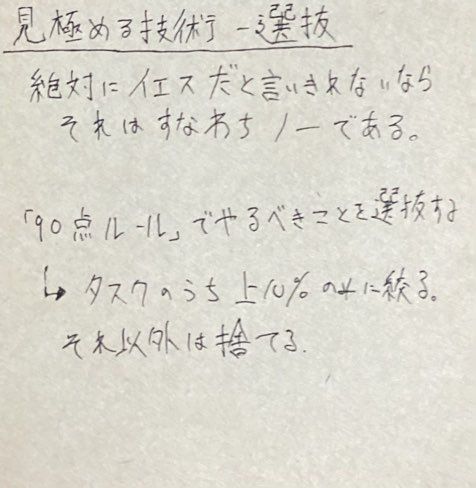 見極める技術 - 選抜
絶対にイエスだと言いきれないなら
それはすなわちノーである。
「90点ルール」でやるべきことを選抜する
↳ タスクのうち上10%のみに絞る。
それ以外は捨てる.